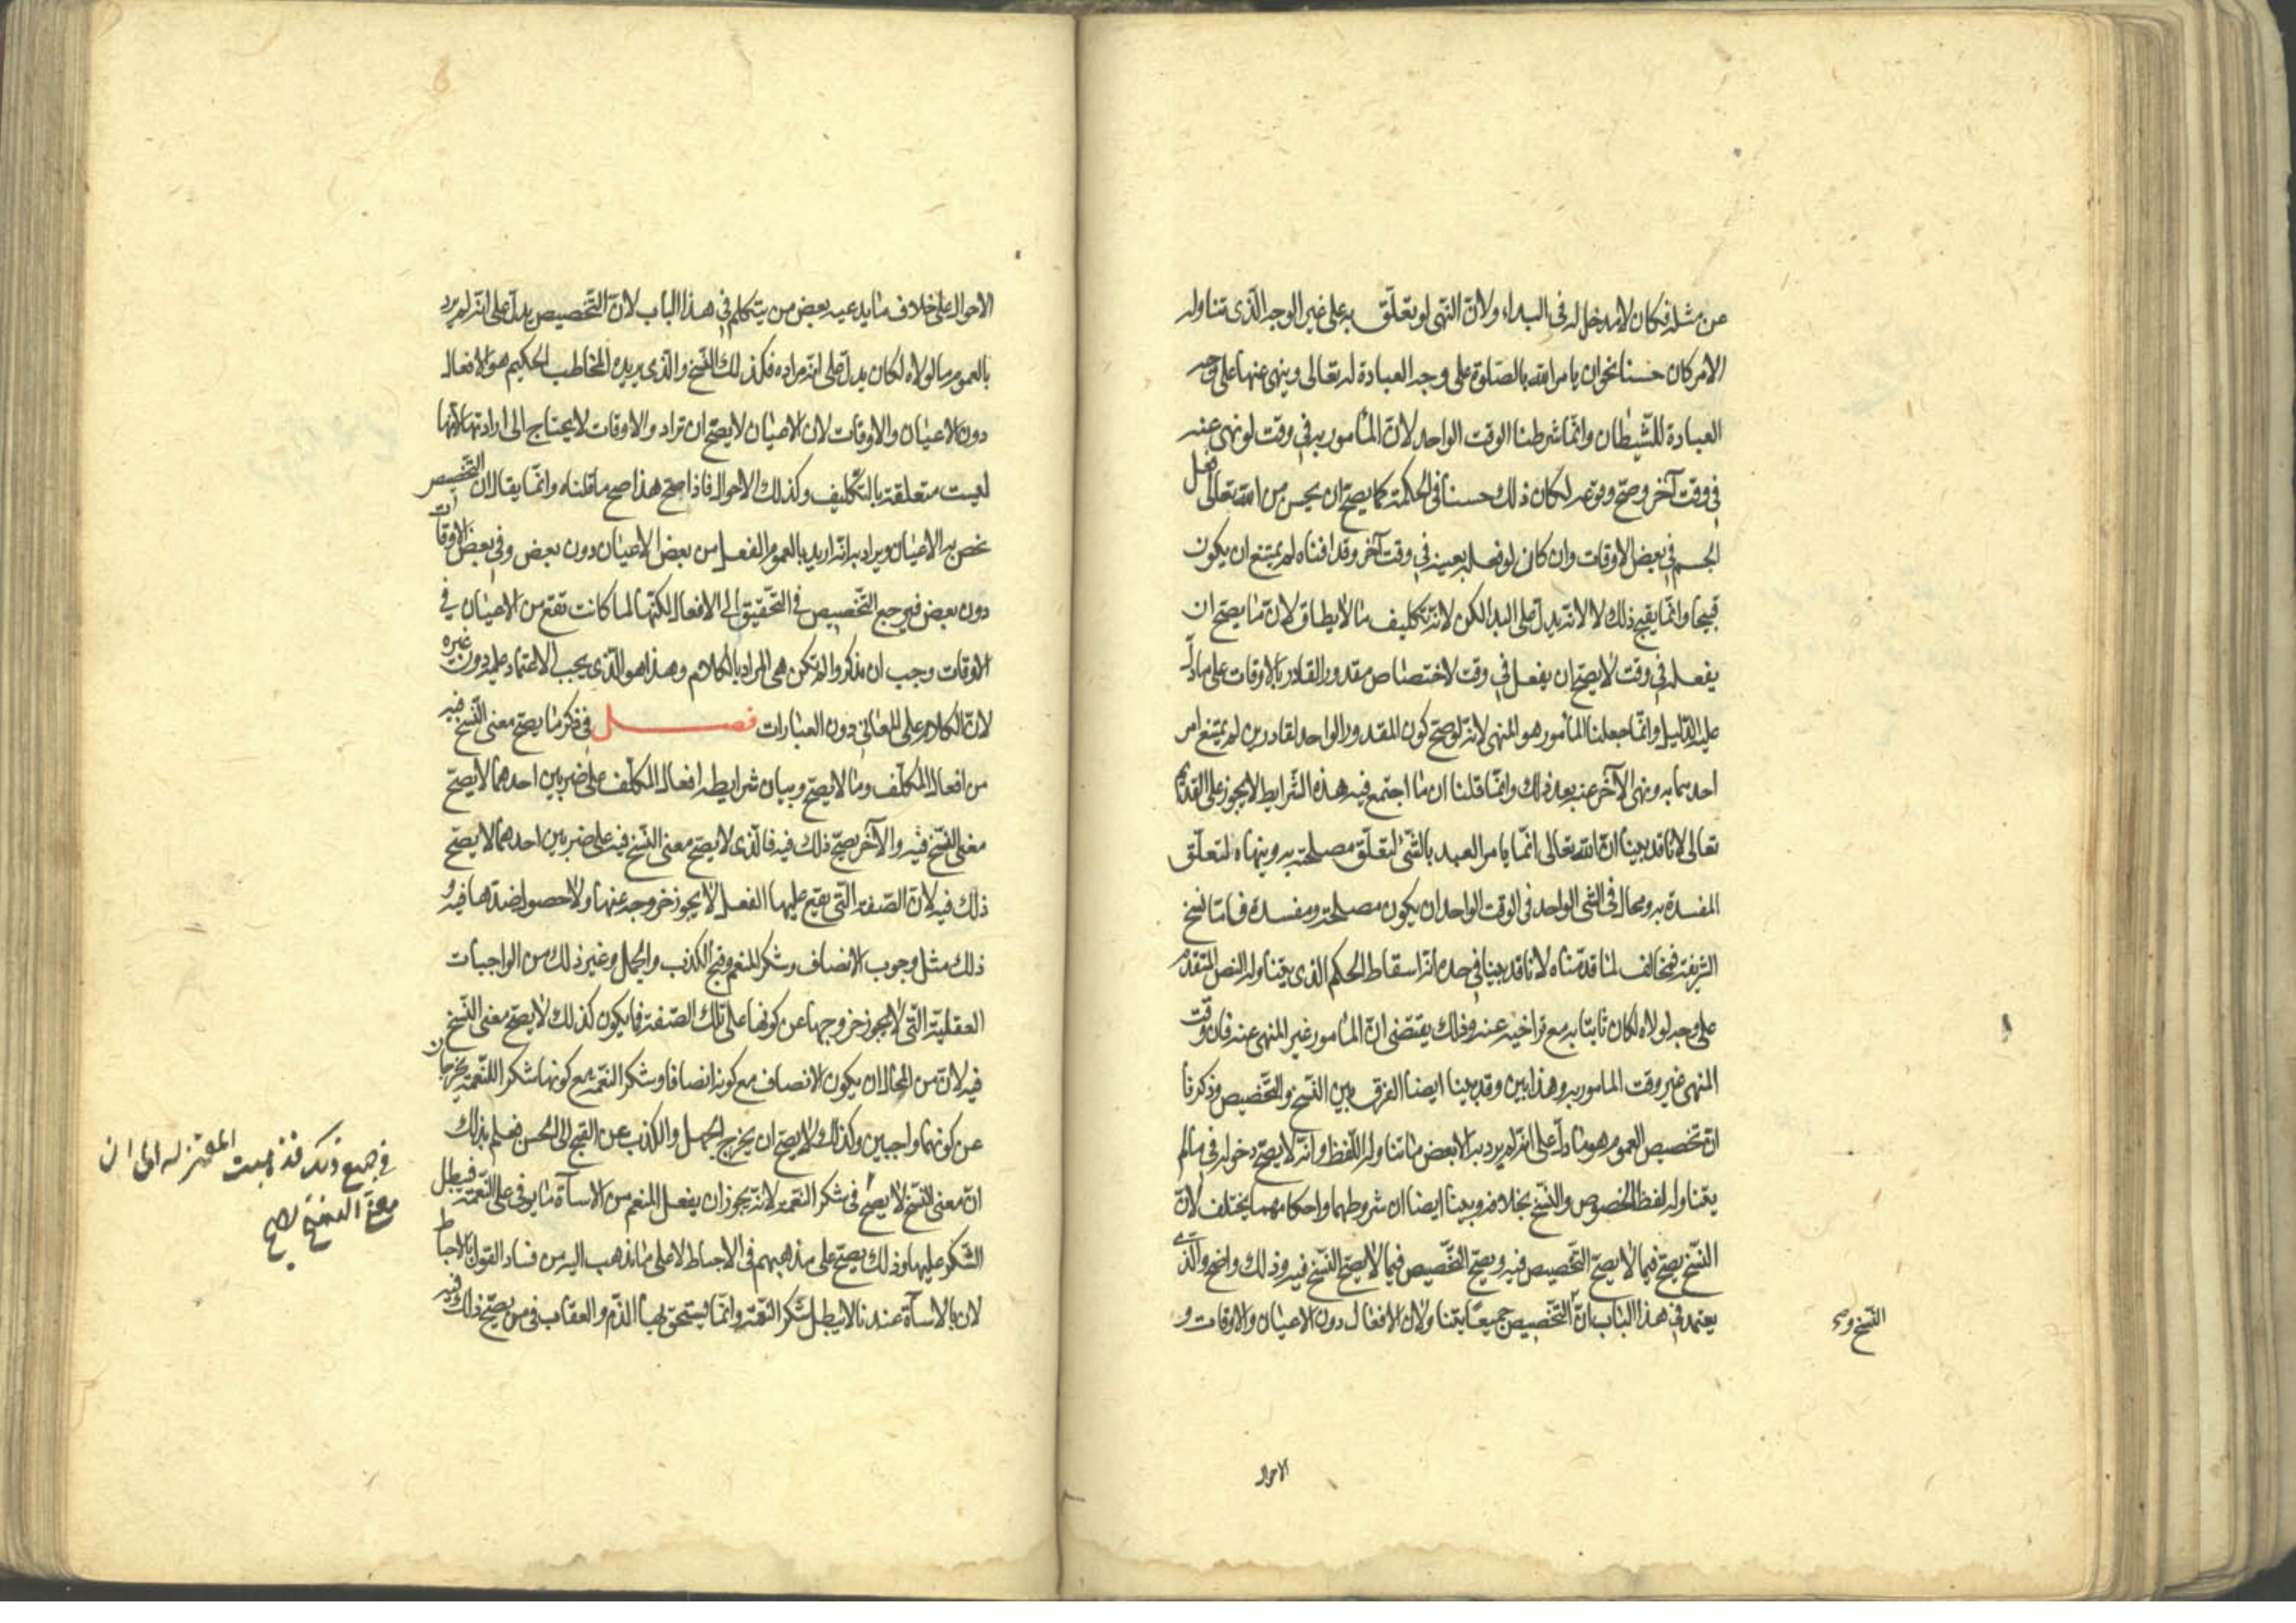 عن مثله فكان لا مدخل له فى البداء ولانّ النّهى لو تعلّق به على غير الوجه الّذى تناوله
الامر كان حسنا نحو ان يامر الله بالصّلوة على وجه العبادة له تعالى وينهى عنها على وجه
العبادة للشّيطان وانّما شرطنا الوقت الواحد لانّ المأمور به فى وقت لو نهى عنه
فى وقت آخر وصحّ وقوعه لكان ذلك حسنا فى الحكمة كما يصحّ ان يحسن من الله تعالى فعل
الجسم فى بعض الاوقات وان كان لو فعله بعينه فى وقت آخر وقد افناه لم يمتنع ان يكون
قبيحا وانّما يقبح ذلك لا لانّه يدلّ على البدا لكن لانّه تكليف ما لا يطاق لانّ ما يصحّ ان
يفعله فى وقت لا يصحّ ان يفعل فى وقت لاختصاص مقدور القادر بالاوقات على ما دلّ
عليه الدّليل وانّما جعلنا المأمور هو المنهى لانّه لو صحّ كون المقدور الواحد لقادرين لم يمتنع امر
احدهما به ونهى الآخر عنه بعد ذلك وانّما قلنا ان ما اجتمع فيه هذه الشّرايط لا يجوز على القديم
تعالى لانا قد بيّنا انّ الله تعالى انّما يامر العبد بالشّئ لتعلّق مصلحته به وينهاه لتعلّق
المفسدة به ومحال فى الشى الواحد فى الوقت الواحد ان يكون مصلحة ومفسدة فامّا نسخ
الشريعة فمخالف لما قدّمناه لانا قد بينا فى حده انّه اسقاط الحكم الذى يتناوله النص المتقدّم
على وجه لولاه لكان ثابتا به مع تراخيه عنه وذلك يقتضى انّ المأمور غير المنهى عنه فان وقت
المنهى غير وقت المامور به وهذا بيّن وقد بينا ايضا الفرق بين النّسخ والتّخصيص وذكرنا
انّ تخصيص العموم هو ما دلّ على انّه لم يرد به الا بعض ما تناوله اللّفظ وانّه لا يصحّ دخوله فى ما لم
يتناوله لفظ الخصوص والنّسخ بخلافه وبينا ايضا ان شروطهما واحكامهما يختلف لانّ
النّسخ يصحّ فيما لا يصحّ التّخصيص فيه ويصحّ التّخصيص فيما لا يصحّ النّسخ فيه وذلك واضح والّذى
يعتمد فى هذا الباب انّ التّخصيص جميعًا يتناولان الافعال دون الاعيان والاوقات و
النّسخ و
الاحوال
الاحوال على خلاف ما يدعيه بعض من يتكلم فى هذا الباب لانّ التّخصيص يدلّ على انّه لم يرد
بالعموم ما لولاه لكان يدلّ على انّه مراده فكذلك النّسخ والّذى يريده المخاطب الحكيم هو الافعال
دون الاعيان والاوقات لان الاعيان لا يصحّ ان تراد والاوقات لا يحتاج الى ارادتها لانّها
ليست متعلقة بالتّكليف وكذلك الاحوال فاذا صحّ هذا صح ما قلناه وانّما يقال ان التّخصيص
يخص به الاعيان ويراد به انّه اريد بالعموم الفعل من بعض الاعيان دون بعض وفى بعض الاوقات
دون بعض فيرجع التّخصيص فى التّحقيق الى الافعال لكنّها لما كانت تقع من الاعيان فى
الاوقات وجب ان يذكر وا لم تكن هى المراد بالكلام وهذا هو الّذى يجب الاعتماد عليه دون غيره
لانّ الكلام على المعانى دون العبارات فصــل فى ذكر ما يصحّ معنى النّسخ فيه
من افعال المكلّف وما لا يصحّ وبيان شرايطه افعال المكلّف على ضربين احدهما لا يصحّ
معنى النّسخ فيه والآخر يصحّ ذلك فيه فالّذى لا يصحّ معنى النّسخ فيه على ضربين احدهما لا يصحّ
ذلك فيه لانّ الصّفة الّتى يقع عليها الفعل لا يجوز خروجه عنها ولا حصول ضدّها فيه و
ذلك مثل وجوب الانصاف وشكر المنعم وقبح الكذب والجهل وغير ذلك من الواجبات
العقليّة الّتى لا يجوز خروجها عن كونها على تلك الصّفة فما يكون كذلك لا يصحّ معنى النّسخ
فيه لانّ من المحال ان يكون الانصاف مع كونه انصافا وشكر النّعمة مع كونها شكرا للنّعمة يخرجان
عن كونهما واجبين وكذلك لا يصحّ ان يخرج الجهل والكذب عن القبح الى الحسن فعلم بذلك
انّ معنى النّسخ لا يصحّ فى شكر النّعمة لانّه يجوز ان يفعل المنعم من الاسآة ما يوفى على النّعمة فيبطل
الشّكر عليها وذلك يصحّ على مذهبهم فى الاحباط لا على ما نذهب اليه من فساد القول بالاحباط
لان بالاسآة عندنا لا يبطل شكر النّعمة وانّما يستحق بها الذّم والعقاب فى من يصحّ ذلك فيه
فى جميع ذلك فذهبت المعتزله الى ان
معنى النسخ يصح